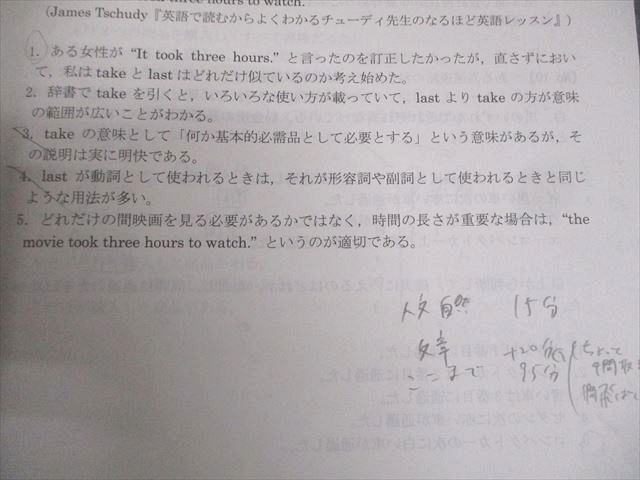 hours to watch.
(James Tschudy『英語で読むからよくわかるチューディ先生のなるほど英語レッスン』)
1. ある女性が “It took three hours.” と言ったのを訂正したかったが，直さずにおい
て，私は take と last はどれだけ似ているのか考え始めた。
2. 辞書で take を引くと，いろいろな使い方が載っていて，last より take の方が意味
の範囲が広いことがわかる。
3. take の意味として「何か基本的必需品として必要とする」という意味があるが，そ
の説明は実に明快である。
4. last が動詞として使われるときは，それが形容詞や副詞として使われるときと同じ
ような用法が多い。
5. どれだけの間映画を見る必要があるかではなく，時間の長さが重要な場合は，“the
movie took three hours to watch.” というのが適切である。
人文 自然 15分
文章 +20分
ここまで 95分